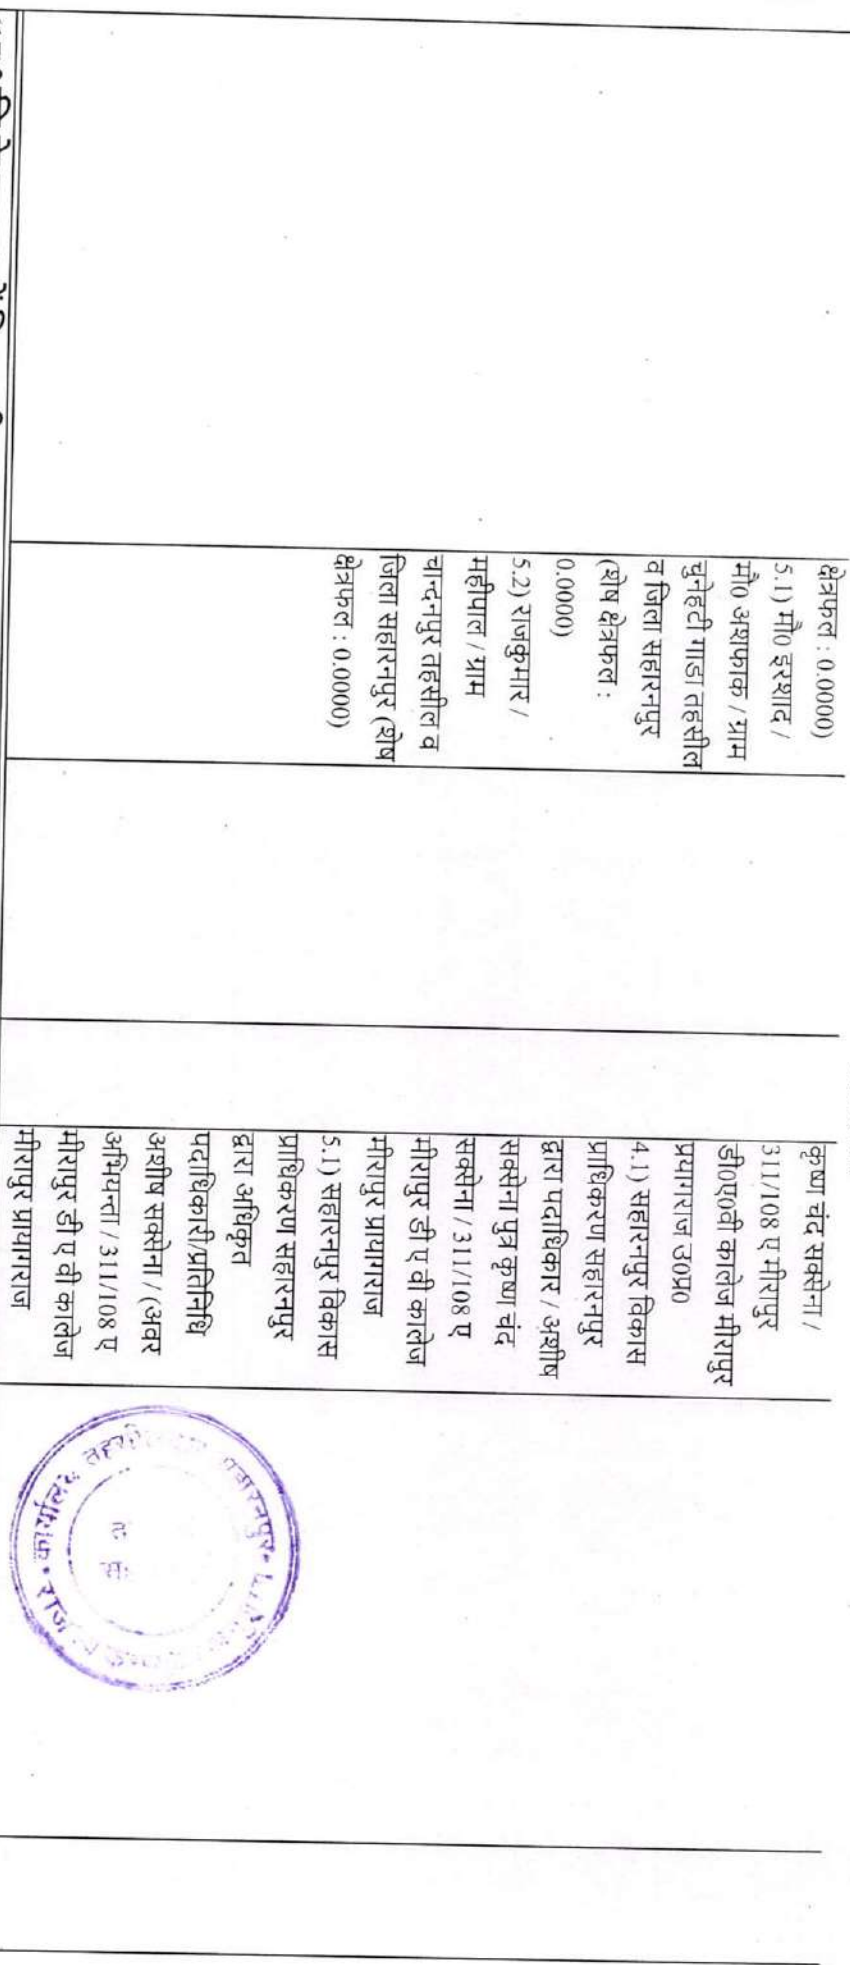 क्षेत्रफल : 0.0000)
5.1) मौ0 इरशाद /
मौ0 अशफाक / ग्राम
चुनेहटी गाडा तहसील
व जिला सहारनपुर
(शेष क्षेत्रफल :
0.0000)
5.2) राजकुमार /
महीपाल / ग्राम
चान्दनपुर तहसील व
जिला सहारनपुर (शेष
क्षेत्रफल : 0.0000)
कृष्ण चंद सक्सेना /
311/108 ए मीरापुर
डी0ए0वी कालेज मीरापुर
प्रयागराज उ0प्र0
4.1) सहारनपुर विकास
प्राधिकरण सहारनपुर
द्वारा पदाधिकार / अशीष
सक्सेना पुत्र कृष्ण चंद
सक्सेना / 311/108 ए
मीरापुर डी ए वी कालेज
मीरापुर प्रायागराज
5.1) सहारनपुर विकास
प्राधिकरण सहारनपुर
द्वारा अधिकृत
पदाधिकारी/प्रतिनिधि
अशीष सक्सेना / (अवर
अभियन्ता / 311/108 ए
मीरापुर डी ए वी कालेज
मीरापुर प्रायागराज
कार्यालय